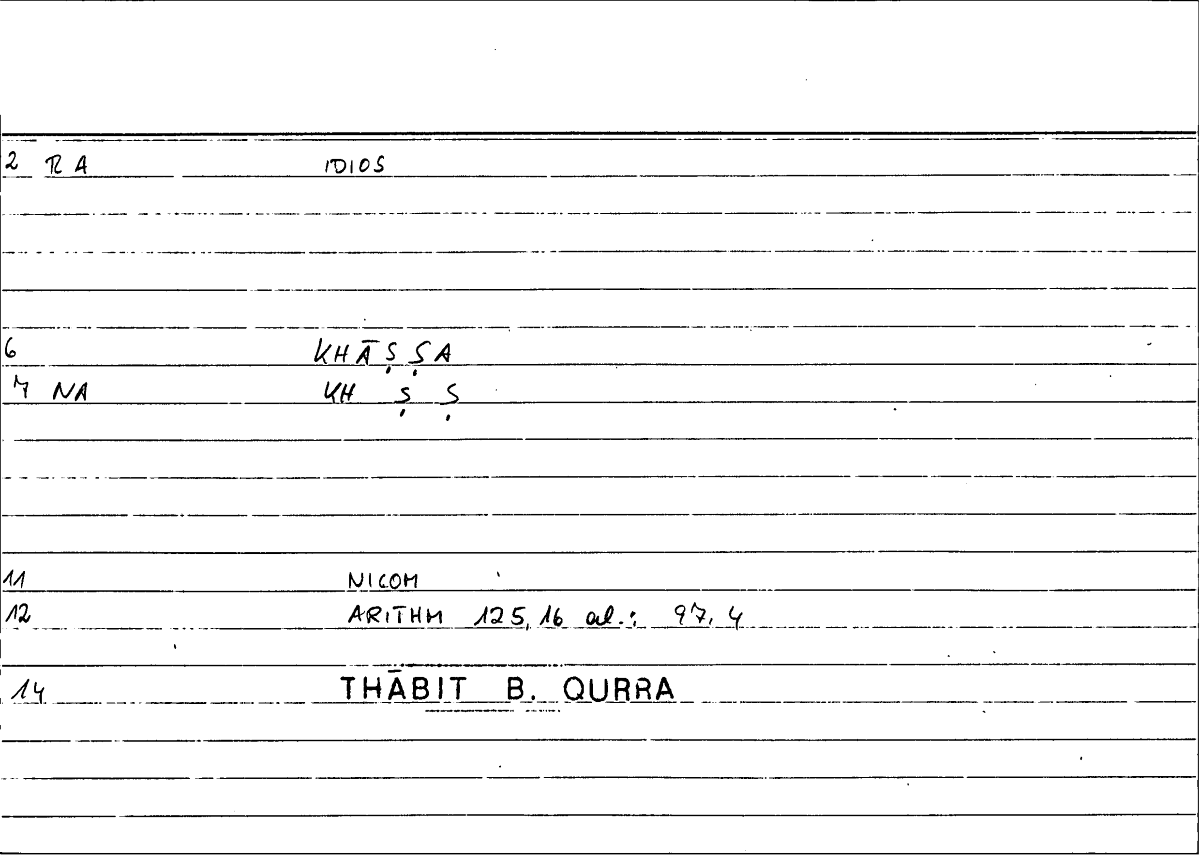 2 RA IDIOS
6 KHĀṢṢA
7 NA KH Ṣ Ṣ
11 NICOM
12 ARITHM 125,16 al.: 97,4
14 THĀBIT B. QURRA